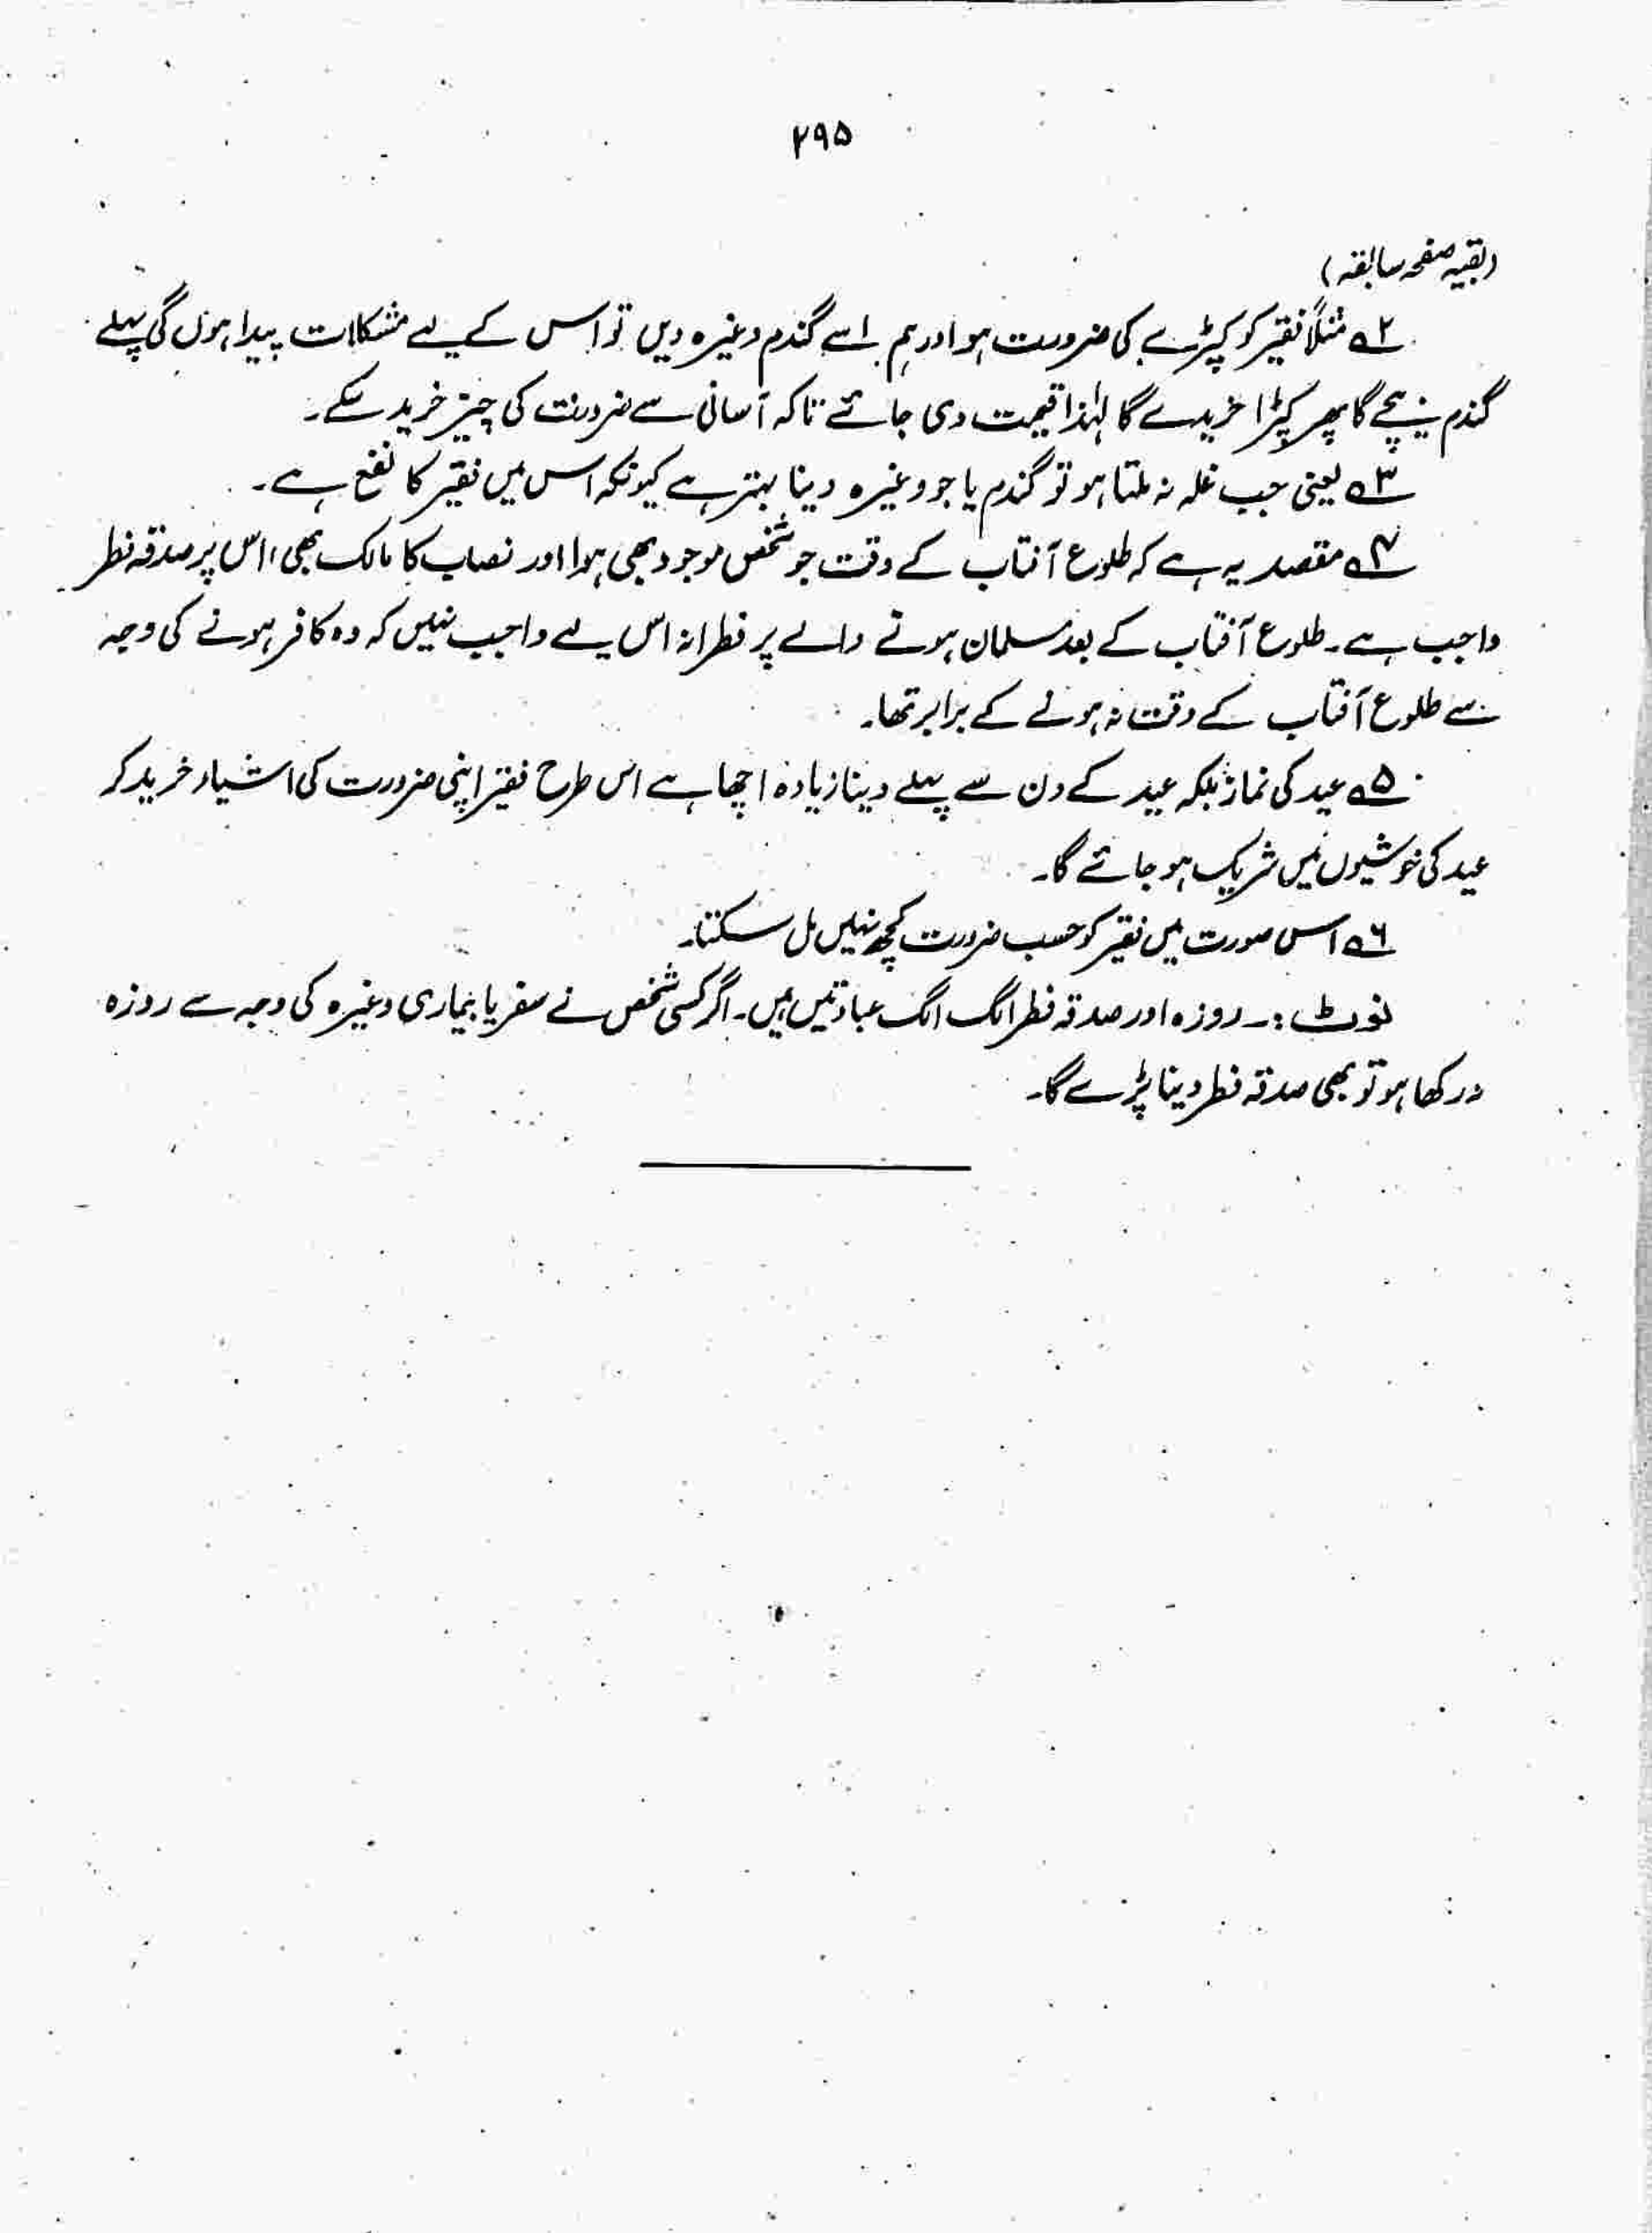 ۲۹۵
(بقیہ صفحہ سابقہ)
۲؎ مثلاً فقیر کو کپڑے کی ضرورت ہو اور ہم اسے گندم وغیرہ دیں تو اس کے لیے مشکلات پیدا ہوں گی پہلے
گندم بیچے گا پھر کپڑا خریدے گا لہٰذا قیمت دی جائے تاکہ آسانی سے ضرورت کی چیز خرید سکے۔
۳؎ یعنی جب غلہ نہ ملتا ہو تو گندم یا جو وغیرہ دینا بہتر ہے کیونکہ اس میں فقیر کا نفع ہے۔
۴؎ مقصد یہ ہے کہ طلوع آفتاب کے وقت جو شخص موجود بھی ہو اور نصاب کا مالک بھی، اس پر صدقہ فطر
واجب ہے۔ طلوع آفتاب کے بعد مسلمان ہونے والے پر فطرانہ اس لیے واجب نہیں کہ وہ کافر ہونے کی وجہ
سے طلوع آفتاب کے وقت نہ ہونے کے برابر تھا۔
۵؎ عید کی نماز بلکہ عید کے دن سے پہلے دینا زیادہ اچھا ہے اس طرح فقیر اپنی ضرورت کی اشیاء خرید کر
عید کی خوشیوں میں شریک ہو جائے گا۔
۶؎ اس صورت میں فقیر کو حسب ضرورت کچھ نہیں مل سکتا۔
نوٹ :۔ روزہ اور صدقہ فطر الگ الگ عبادتیں ہیں۔ اگر کسی شخص نے سفر یا بیماری وغیرہ کی وجہ سے روزہ
نہ رکھا ہو تو بھی صدقہ فطر دینا پڑے گا۔